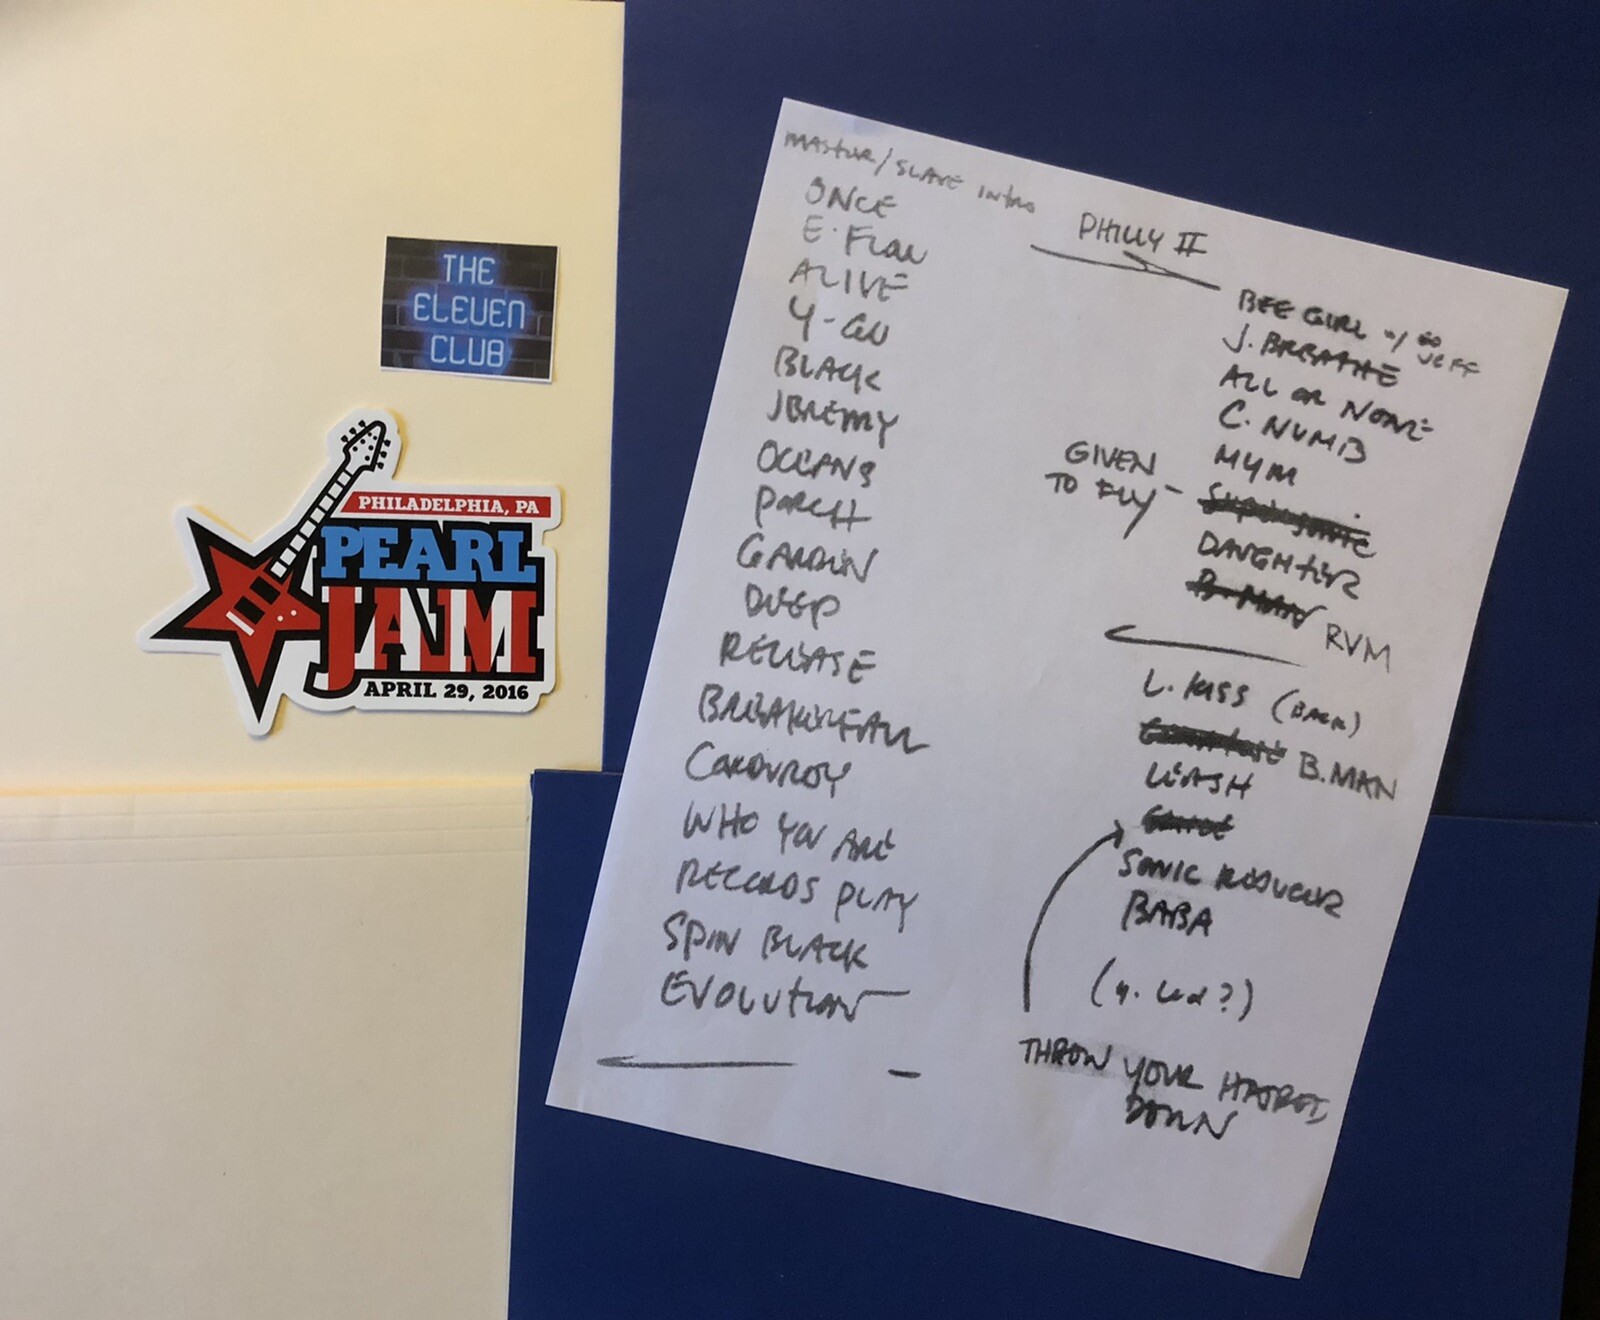 THE
ELEVEN
CLUB
PHILADELPHIA, PA
PEARL
JAM
APRIL 29, 2016
MASTER/SLAVE INTRO
PHILLY II
ONCE
E. FLOW
ALIVE
BLACK
JEREMY
OCEANS
PORCH
GARDEN
DEEP
RELEASE
BREAKERFALL
CORDUROY
WHO YOU ARE
RECORDS PLAY
SPIN BLACK
EVOLUTION
BEE GIRL w/ JEFF
J. BREATHE
ALL OR NONE
C. NUMB
MYM
GIVEN
TO FLY - Supersonic
DAUGHTER
B. MAN RVM
L. KISS (BACK)
B.MAN
LEASH
SONIC REDUCER
BABA
(Y. Led?)
THROW YOUR HATRED
DOWN